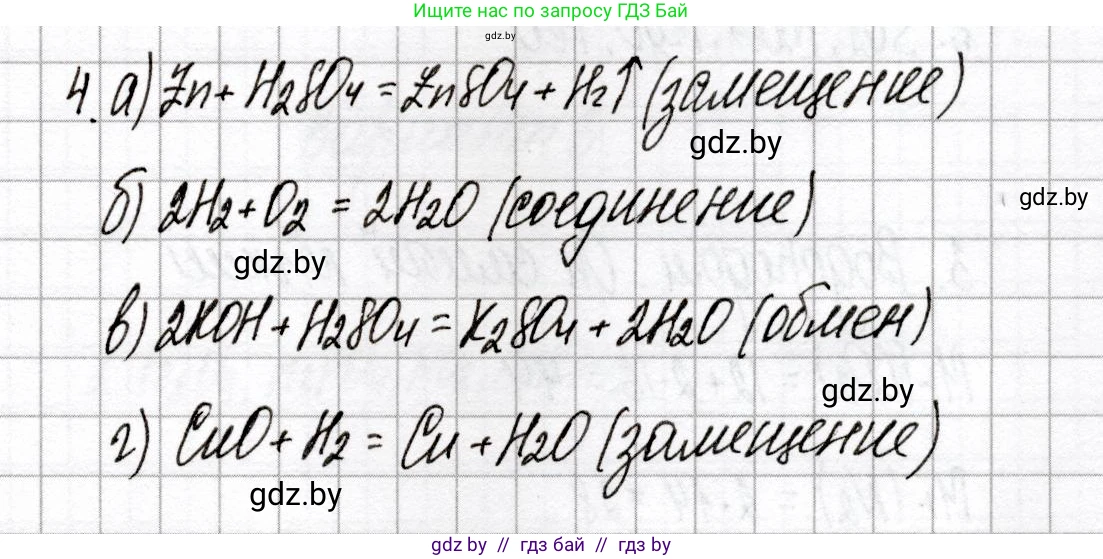 Ищите нас по запросу ГДЗ Бай
gdz.by
4. а) Zn + H2SO4 = ZnSO4 + H2↑ (замещение)
gdz.by
б) 2H2 + O2 = 2H2O (соединение)
gdz.by
gdz.by
в) 2KOH + H2SO4 = K2SO4 + 2H2O (обмен)
gdz.by
г) CuO + H2 = Cu + H2O (замещение)
gdz.by
gdz by // гдз бай // гдз by